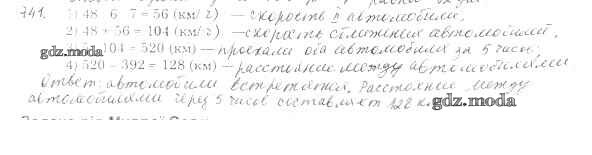 741. 1) 48 : 6 · 7 = 56 (км/г) — скорость II автомобиля.
2) 48 + 56 = 104 (км/г) — скорость сближения автомобилей.
104 = 520 (км) — проехали оба автомобиля за 5 часов;
gdz.moda
4) 520 − 392 = 128 (км) — расстояние между автомобилями
Ответ: автомобили встретятся. Расстояние между
автомобилями через 5 часов составляет 128 к
gdz.moda